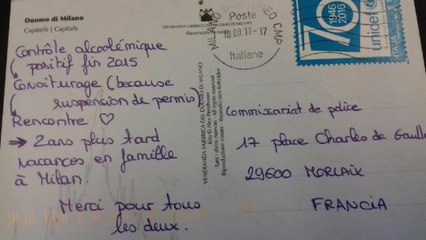 Duomo di Milano
Capitelli | Capitals
Contrôle alcoolémique
positif fin 2015
Covoiturage (because
suspension de permis)
Rencontre ♡
→ 2 ans plus tard
vacances en famille
à Milan.
Merci pour tous
les deux.
VENERANDA FABBRICA DEL DUOMO DI MILANO
MILANO
CMP
Poste
18.08.17-17
Italiane
1946
2016
70
unicef
Commissariat de police
17 place Charles de Gaulle
29600 MORLAIX
FRANCIA